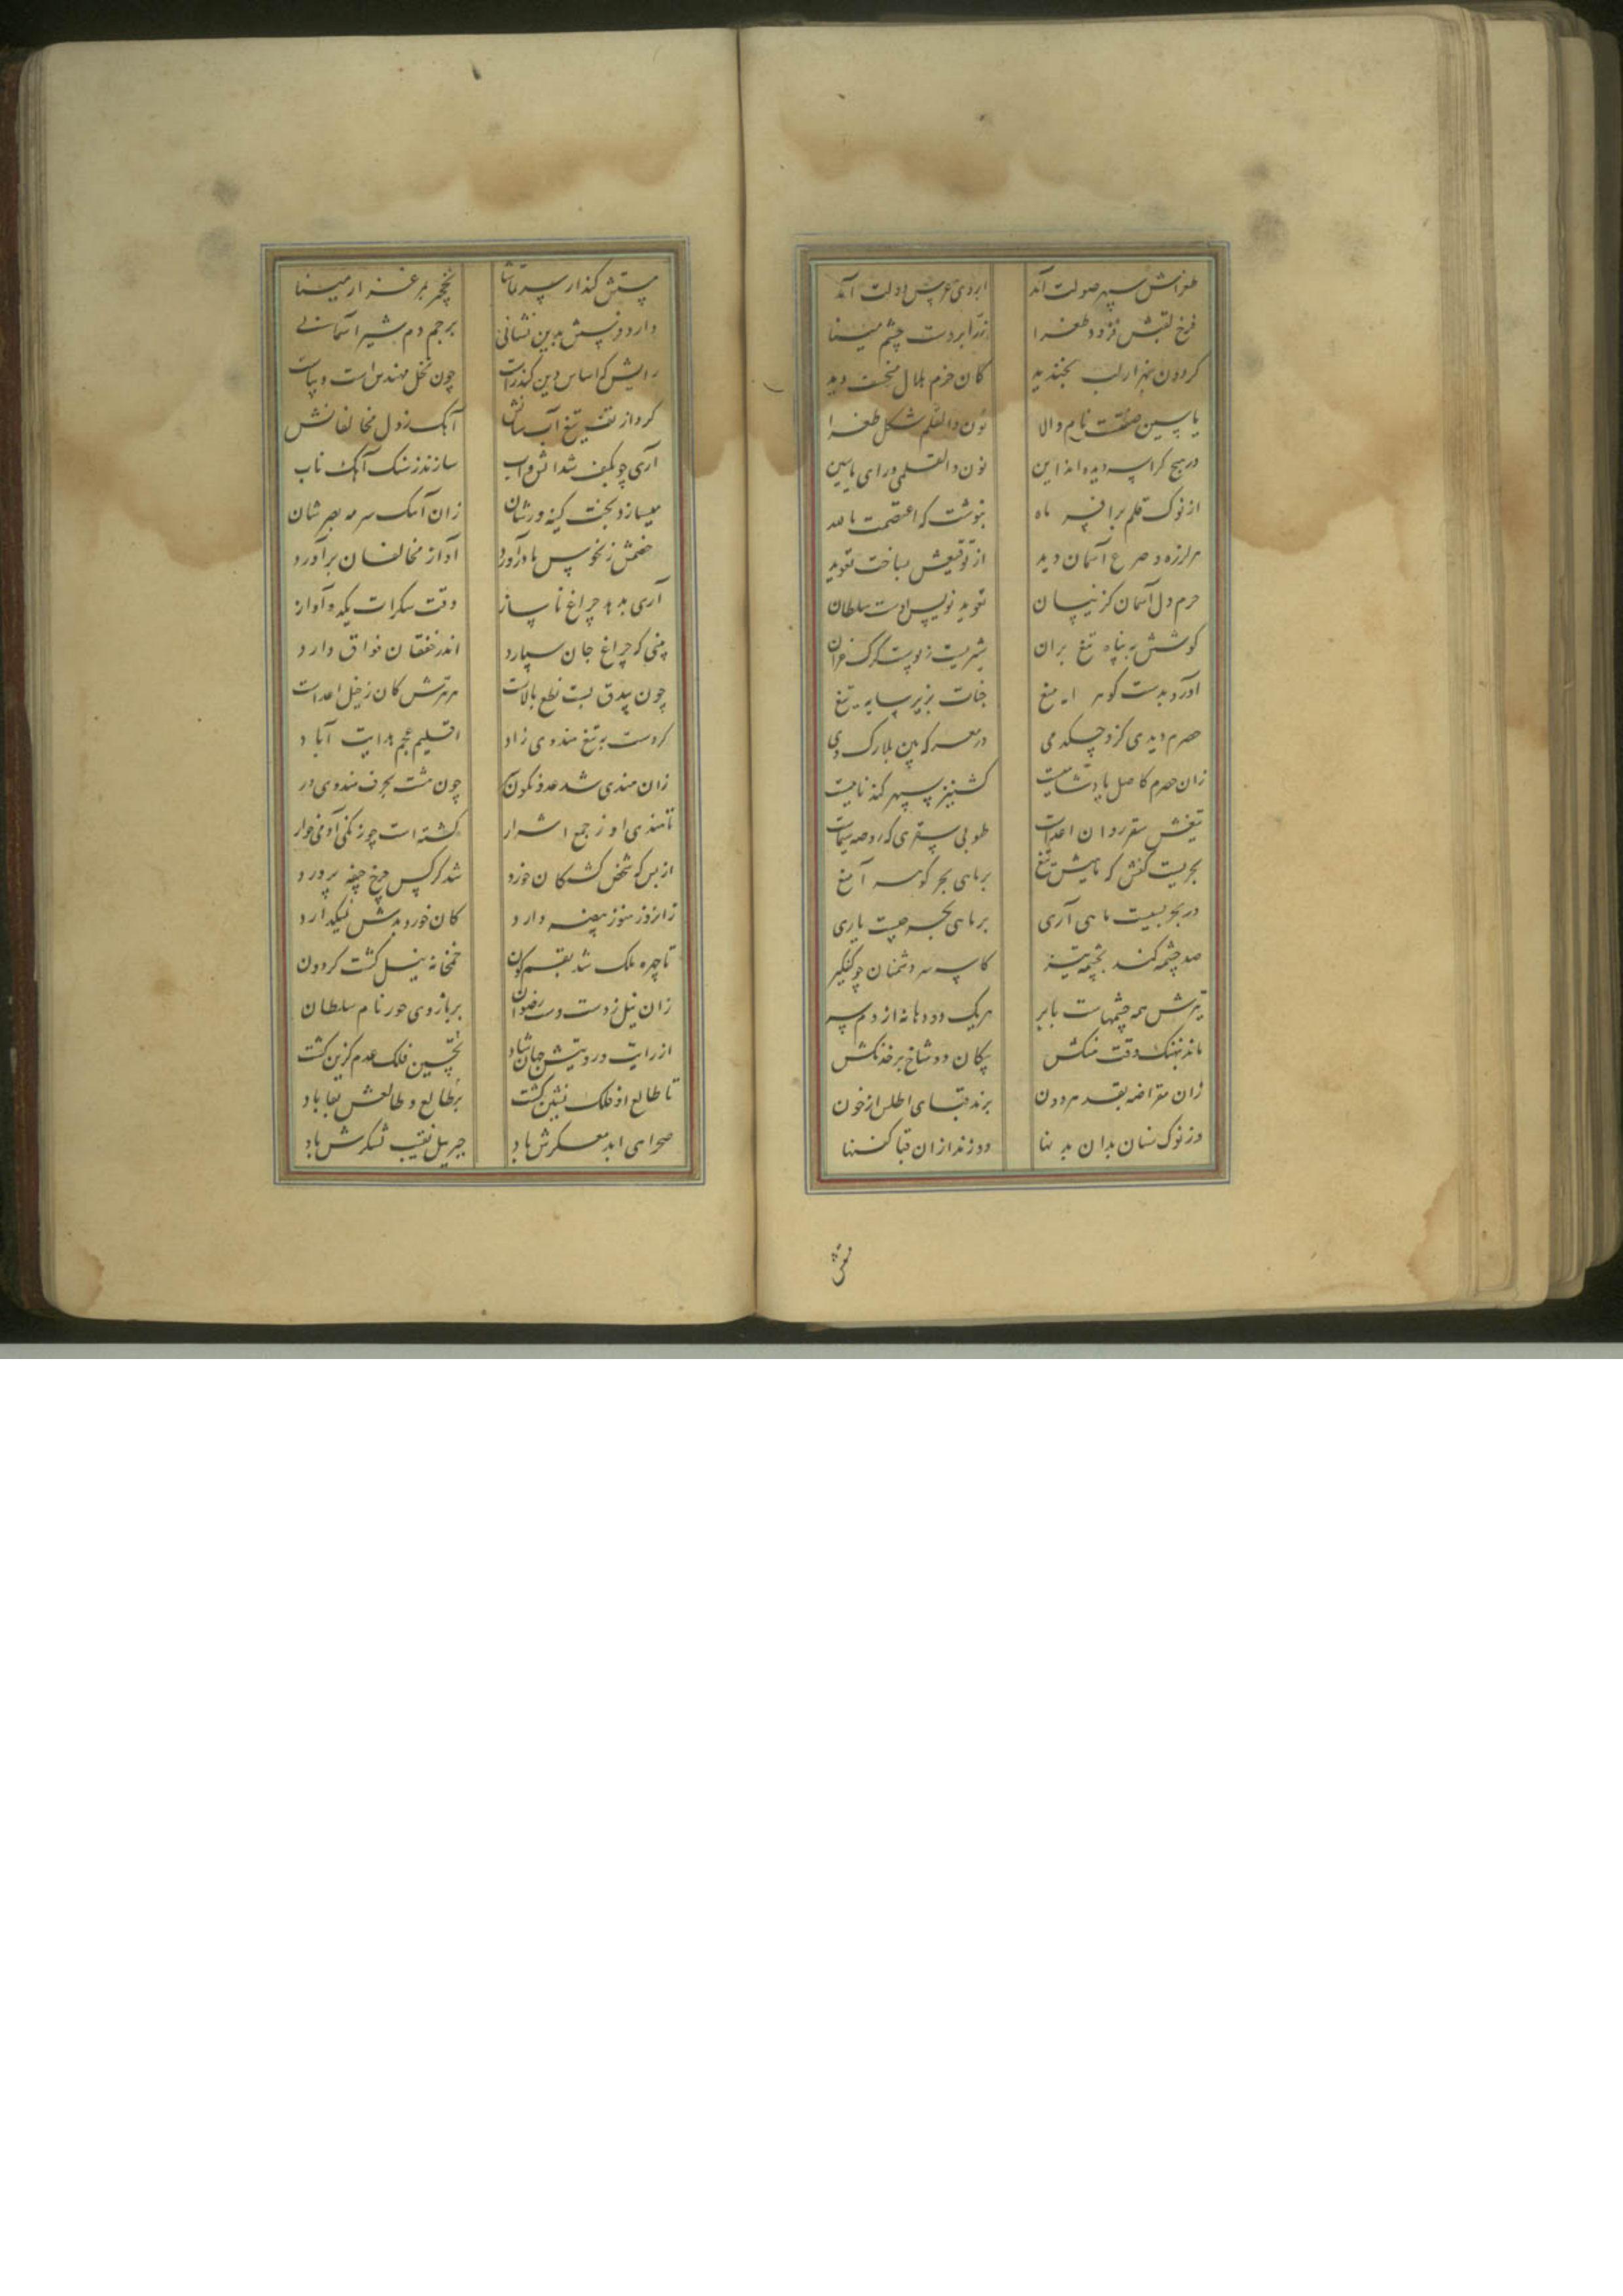 طغراش سپهر صولت آمد ابروی عروس دولت آمد
فرخ لقبش فزود طغرا زابروست چشم مینا
گردون بهزار لب بخندید کان حرم هلال منخسف دید
یاسین صفتست نام والا نون والقلم شکل طغرا
در هیچ کراسه دیده اند این نون والقلمی ورای یاسین
از نوک قلم برافسر ماه بنوشت که اعتصمت بالله
هر لرزه و صرع آسمان دید از توقیعش بساخت تعوید
حرم دل آسمان کزینسان تعوید نویس اوست سلطان
کوشش به پناه تیغ بران شیریست ز پوست کرک
آورد بدست کوهر ا میغ جنات بزیر سایه تیغ
حصرم دیدی کزو چکد می در معرکه بین بلارک وی
زان حصرم کاصل پادشاییست کشنیز سپهر کند ناییست
تیغش سقر روان اعداست طوبی سقری که روضه سیماست
بحریست کفش که ماهیش تیغ بر ماهی بحر کوهر آمیغ
در بحر بسیست ماهی آری بر ماهی بحر چیست یاری
صد چشمه کند بچشمه تیز کاسه سر دشمنان چو کفکیر
تیرش همه چشمهاست بابر هریک دو دهانه از دم سر
ماند نهنک وقت جنکش پیکان دو شاخ بر خدنکش
زان مقراضه بقد هر دون برند قبای اطلس از خون
وز نوک سنان بدان بدنها دوزند ازان قبا کفنها
تیغش
پستش کذار سر تماشا نخچیر بمرغزار مینا
دارد فرسش بدین نشانی برجم دم شیر آسمانی
رایش که اساس دین کندراست چون نحل مهندس است و بیناست
کرد از تف تیغ آب سانش آهک ز دل مخالفانش
آری چو بکف شد آتش و آب سازند ز سنک آهک ناب
میسازد بخت کینه ورشان زان آهک سرمه بصرشان
خصمش ز نحوس باد آورد آواز مخالفان برآورد
آری بدهد چراغ ناساز وقت سکرات یکدو آواز
بینی که چراغ جان سپارد اندر خفقان فواق دارد
چون بیدق بست نطع بالاست هر ترش کان ز خیل اعداست
کردست به تیغ هندوی زاد اقلیم عجم هدایت آباد
زان هندی شد عدو نکون چون مشت بحرف هندوی در
تا هندی او ز جمع اشرار کشته است چو زنکی آدمی خوار
از بس که شخص کشتکان خورد شد کرکس چرخ جیفه پرورد
زانروز هنوز بیضه دارد کان خورد بدش نمیکدارد
تا چهره ملک شد بقم کون خمخانه نیل کشت کردون
زان نیل زدست دست رضوان بر بازوی حور نام سلطان
از رایت و رویتش جهان شاد تحسین فلک عدم کزین کشت
تا طالع او فلک نشین کشت بر طالع و طالعش بقا باد
صحرای ابد معسکرش باد جبریل نقیب لشکرش باد